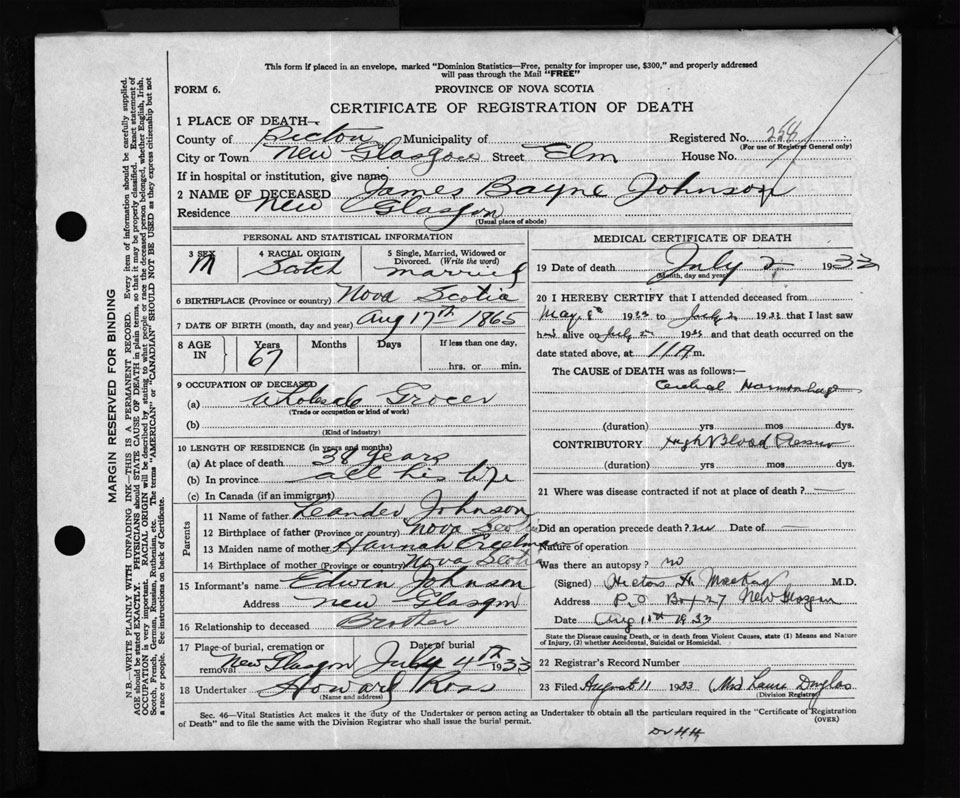 This form if placed in an envelope, marked "Dominion Statistics—Free, penalty for improper use, $300," and properly addressed
will pass through the Mail "FREE"
FORM 6.
PROVINCE OF NOVA SCOTIA
CERTIFICATE OF REGISTRATION OF DEATH
1 PLACE OF DEATH—
County of Pictou Municipality of
Registered No. 258
(For use of Registrar General only)
City or Town New Glasgow Street Elm House No.
If in hospital or institution, give name
2 NAME OF DECEASED James Bayne Johnson
Residence New Glasgow
(Usual place of abode)
PERSONAL AND STATISTICAL INFORMATION
3 SEX M
4 RACIAL ORIGIN Scotch
5 Single, Married, Widowed or Divorced. (Write the word) married
6 BIRTHPLACE (Province or country) Nova Scotia
7 DATE OF BIRTH (month, day and year) Aug 17th 1865
8 AGE IN Years 67 Months Days If less than one day, hrs. or min.
9 OCCUPATION OF DECEASED
(a) Wholesale Grocer
(Trade or occupation or kind of work)
(b)
(Kind of industry)
10 LENGTH OF RESIDENCE (in years and months)
(a) At place of death 38 years
(b) In province all his life
(c) In Canada (if an immigrant)
Parents
11 Name of father Leander Johnson
12 Birthplace of father (Province or country) Nova Scotia
13 Maiden name of mother Hannah Creelman
14 Birthplace of mother (Province or country) Nova Scotia
15 Informant's name Edwin Johnson
Address New Glasgow
16 Relationship to deceased Brother
17 Place of burial, cremation or removal New Glasgow Date of burial July 4th 1933
18 Undertaker Howard Ross
(Name and address)
MEDICAL CERTIFICATE OF DEATH
19 Date of death July 2 1933
(Month, day and year)
20 I HEREBY CERTIFY that I attended deceased from
May 8th 1933 to July 2 1933 that I last saw
him alive on July 2 1933 and that death occurred on
date stated above, at 11 A m.
The CAUSE of DEATH was as follows:—
Cerebral Haemorrhage
(duration) yrs mos dys.
CONTRIBUTORY High Blood Pressure
(duration) yrs mos dys.
21 Where was disease contracted if not at place of death? —
Did an operation precede death? no Date of —
Nature of operation
Was there an autopsy? no
(Signed) Hector H. MacKay M.D.
Address P.O Box 27 New Glasgow
Date Aug 11th 1933
State the Disease causing Death, or in death from Violent Causes, state (1) Means and Nature
of Injury, (2) whether Accidental, Suicidal or Homicidal.
22 Registrar's Record Number
23 Filed August 11 1933 Mrs Laura Douglas
(Division Registrar)
Sec. 46—Vital Statistics Act makes it the duty of the Undertaker or person acting as Undertaker to obtain all the particulars required in the "Certificate of Registration
of Death" and to file the same with the Division Registrar who shall issue the burial permit.
(OVER)
MARGIN RESERVED FOR BINDING
N.B.—WRITE PLAINLY WITH UNFADING INK—THIS IS A PERMANENT RECORD. Every item of information should be carefully supplied.
AGE should be stated EXACTLY. PHYSICIANS should STATE CAUSE OF DEATH in plain terms, so that it may be properly classified. Exact statement of
OCCUPATION is very important. RACIAL ORIGIN will be described by stating to what people or race the deceased person belonged, whether English, Irish,
Scotch, French, German, Russian, Ruthenian, etc. The terms "AMERICAN" or "CANADIAN" SHOULD NOT BE USED as they express citizenship but not
a race or people. See instructions on back of Certificate.